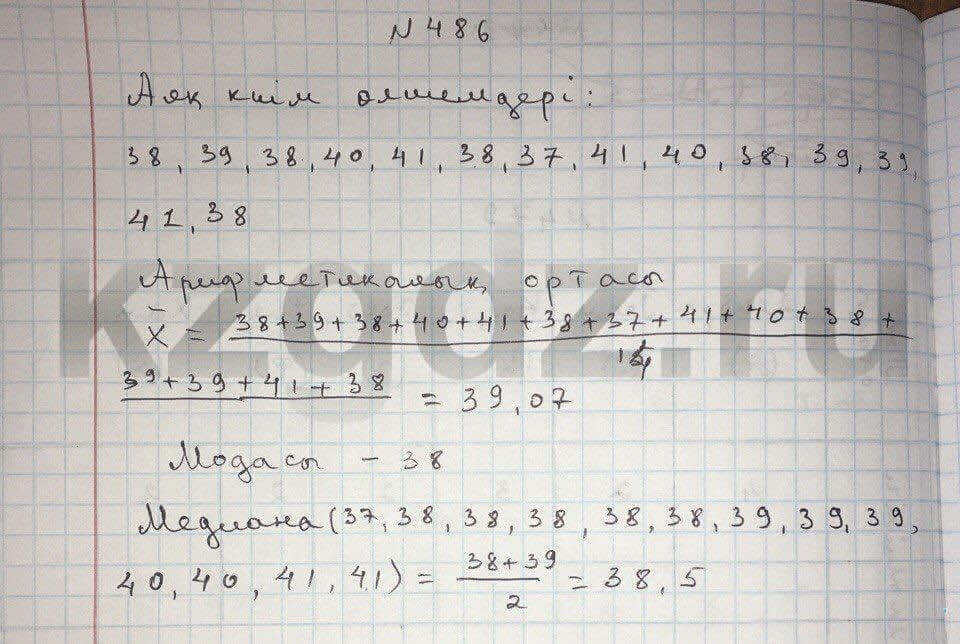 N 486
Аяқ киім өлшемдері:
38, 39, 38, 40, 41, 38, 37, 41, 40, 38, 39, 39,
41, 38
Арифметикалық ортасы
x̄ = 38+39+38+40+41+38+37+41+40+38+
14
39+39+41+38 = 39,07
Модасы - 38
Медиана (37, 38, 38, 38, 38, 38, 39, 39, 39,
40, 40, 41, 41) = 38+39 / 2 = 38,5
kzgdz.ru